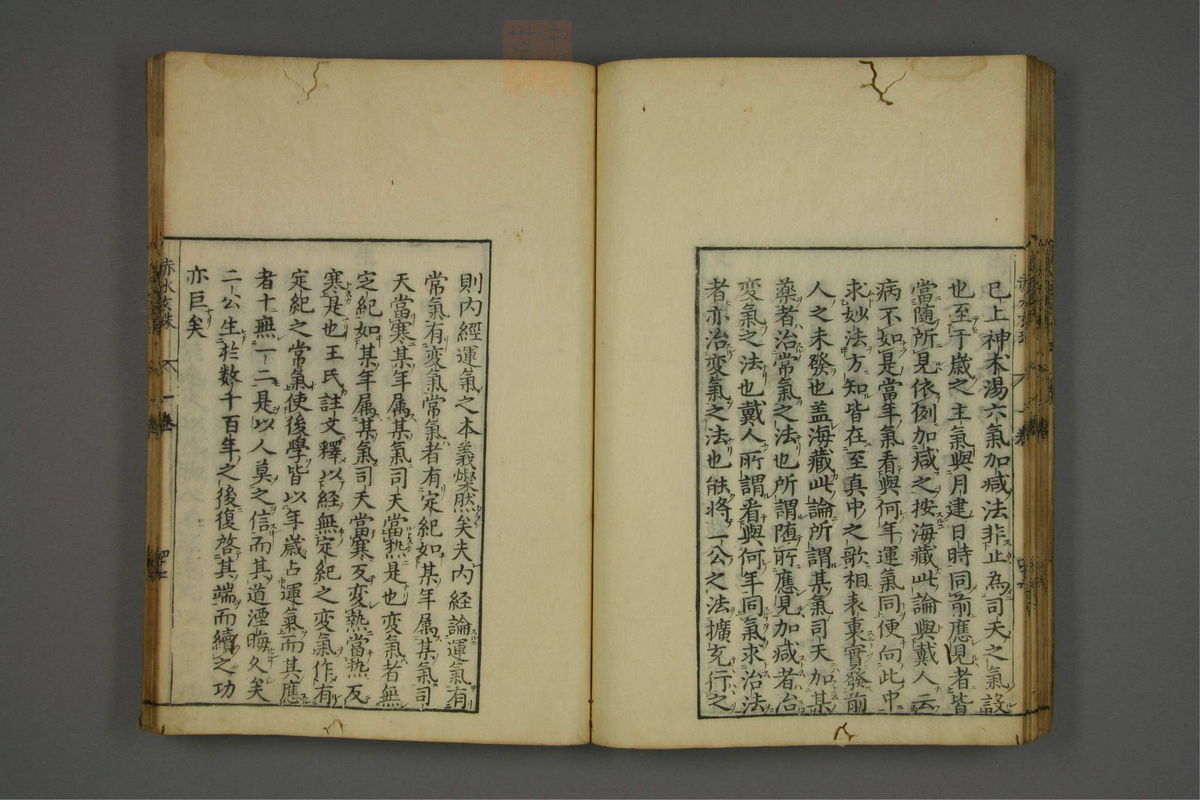 已上神木湯六氣加减法非止為司天之氣設
也至于歲之主氣與月建日時同前應見者皆
當随所見依例加减之按海藏此論與戴人云
病不如是當年氣看與何年運氣同便向此中
求妙法方知皆在至真中之歌相表裏實發前
人之未發也盖海藏此論所謂某氣司天加某
藥者治常氣之法也所謂随所應見加减者治
変氣之法也戴人所謂看與何年同氣求治法
者亦治変氣之法也能將一公之法擴充行之
則内經運氣之本義燦然矣夫内経論運氣有
常氣有変氣常氣者有定紀如某年属某氣司
天當寒某年属某氣司天當熱是也変氣者無
定紀如某年属某氣司天當寒反変熱當熱反
寒是也王氏註文釋以経無定紀之変氣作有
定紀之常氣使後學皆以年歳占運氣而其應
者十無一二是以人莫之信而其道湮晦久矣
二公生於数千百年之後復啓其端而續之功
亦巨矣
赤水玄珠
一卷